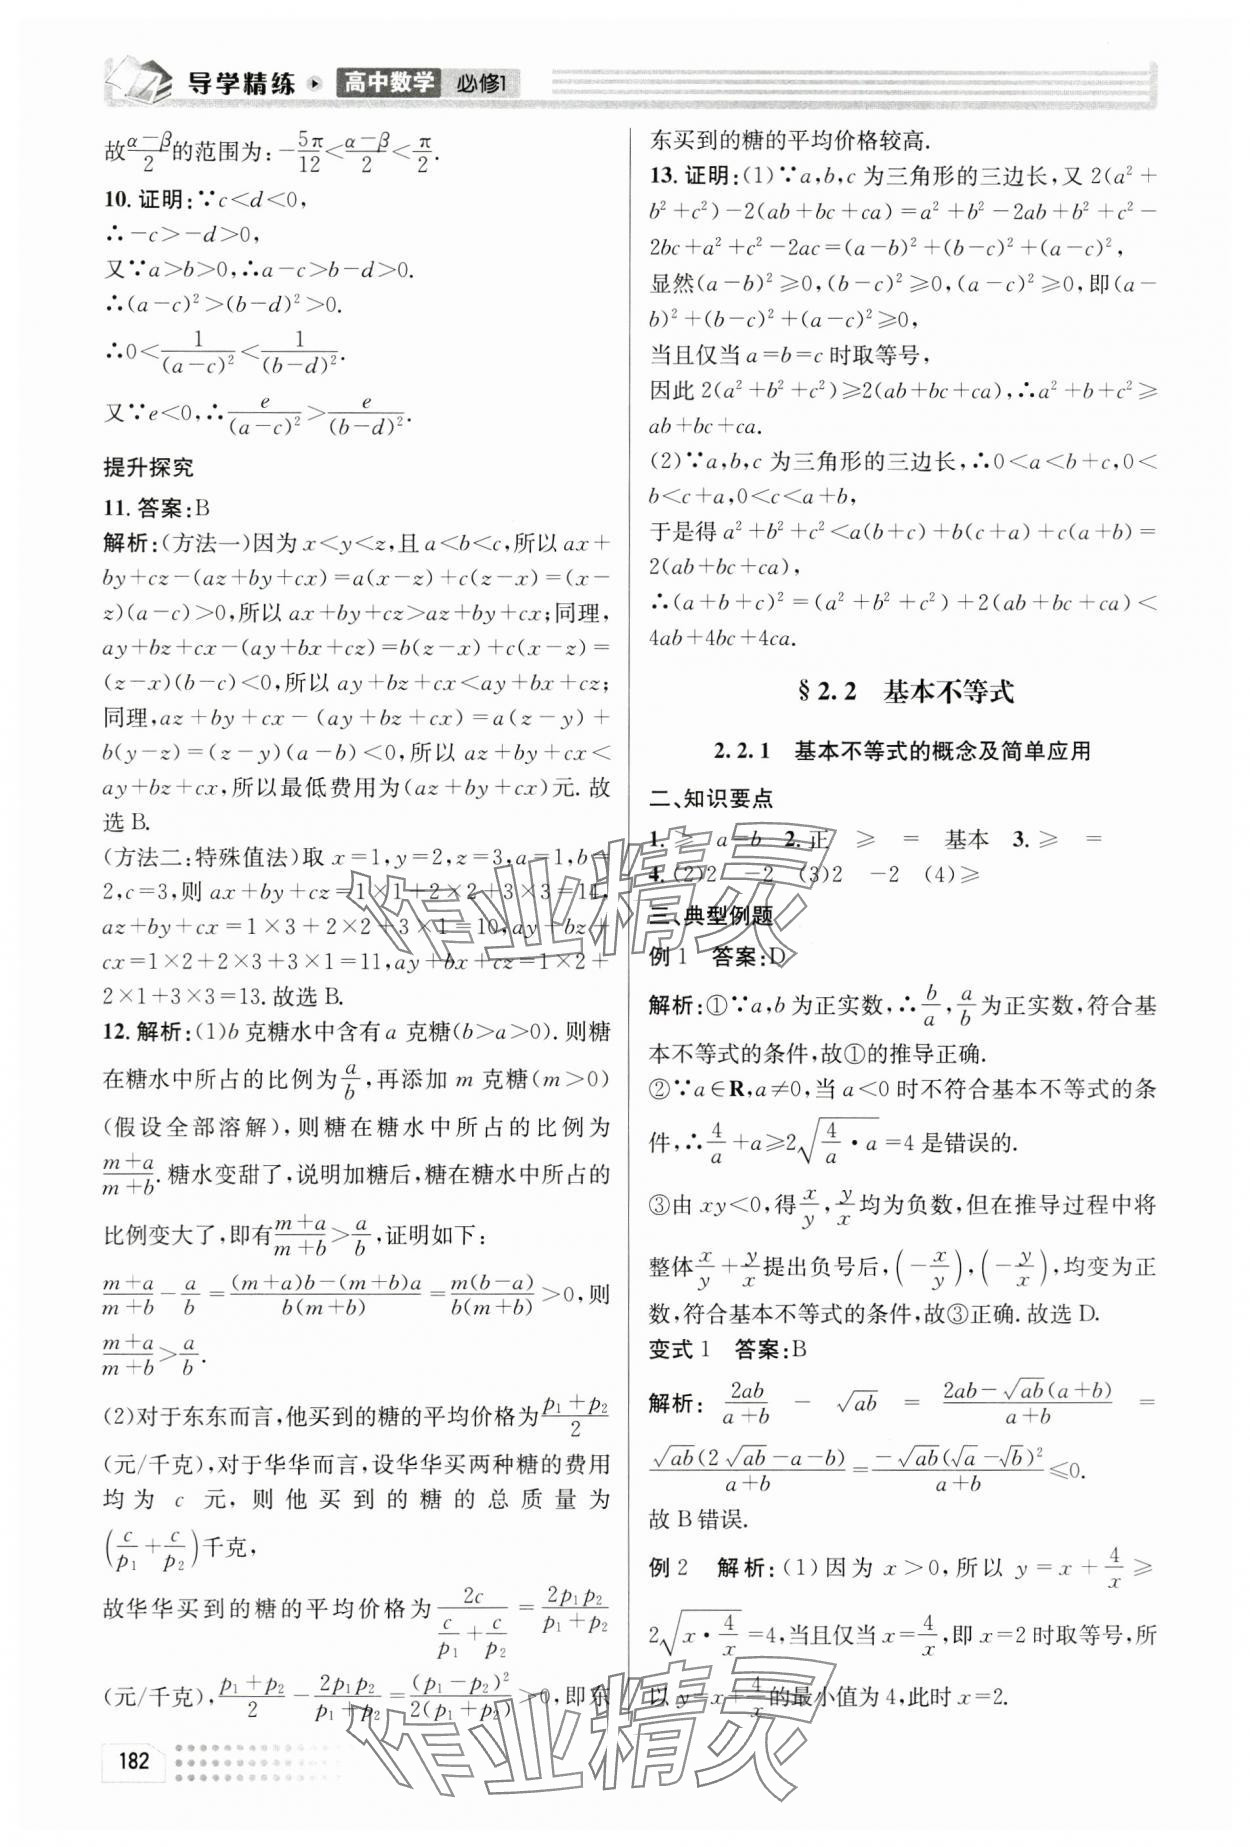 导学精练 高中数学 必修1
故\frac{α-β}{2}的范围为:-\frac{5π}{12}<\frac{α-β}{2}<\frac{π}{2}.
10.证明:∵c<d<0,
∴-c>-d>0,
又∵a>b>0,∴a-c>b-d>0.
∴(a-c)²>(b-d)²>0.
∴0<\frac{1}{(a-c)²}<\frac{1}{(b-d)²}.
又∵e<0,∴\frac{e}{(a-c)²}>\frac{e}{(b-d)²}.
提升探究
11.答案:B
解析:(方法一)因为x<y<z,且a<b<c,所以ax+
by+cz-(az+by+cx)=a(x-z)+c(z-x)=(x-
z)(a-c)>0,所以ax+by+cz>az+by+cx;同理,
ay+bz+cx-(ay+bx+cz)=b(z-x)+c(x-z)=
(z-x)(b-c)<0,所以ay+bz+cx<ay+bx+cz;
同理,az+by+cx-(ay+bz+cx)=a(z-y)+
b(y-z)=(z-y)(a-b)<0,所以az+by+cx<
ay+bz+cx,所以最低费用为(az+by+cx)元.故
选B.
(方法二:特殊值法)取x=1,y=2,z=3,a=1,b=
2,c=3,则ax+by+cz=1×1+2×2+3×3=14,
az+by+cx=1×3+2×2+3×1=10,ay+bz+
cx=1×2+2×3+3×1=11,ay+bx+cz=1×2+
2×1+3×3=13.故选B.
12.解析:(1)b克糖水中含有a克糖(b>a>0).则糖
在糖水中所占的比例为\frac{a}{b},再添加m克糖(m>0)
(假设全部溶解),则糖在糖水中所占的比例为
\frac{m+a}{m+b}.糖水变甜了,说明加糖后,糖在糖水中所占的
比例变大了,即有\frac{m+a}{m+b}>\frac{a}{b},证明如下:
\frac{m+a}{m+b}-\frac{a}{b}=\frac{(m+a)b-(m+b)a}{b(m+b)}=\frac{m(b-a)}{b(m+b)}>0,则
\frac{m+a}{m+b}>\frac{a}{b}.
(2)对于东东而言,他买到的糖的平均价格为\frac{p₁+p₂}{2}
(元/千克),对于华华而言,设华华买两种糖的费用
均为c元,则他买到的糖的总质量为
(\frac{c}{p₁}+\frac{c}{p₂})千克,
故华华买到的糖的平均价格为\frac{2c}{\frac{c}{p₁}+\frac{c}{p₂}}=\frac{2p₁p₂}{p₁+p₂}
(元/千克),\frac{p₁+p₂}{2}-\frac{2p₁p₂}{p₁+p₂}=\frac{(p₁-p₂)²}{2(p₁+p₂)}>0,即东
东买到的糖的平均价格较高.
13.证明:(1)∵a,b,c为三角形的三边长,又2(a²+
b²+c²)-2(ab+bc+ca)=a²+b²-2ab+b²+c²-
2bc+a²+c²-2ac=(a-b)²+(b-c)²+(a-c)²,
显然(a-b)²≥0,(b-c)²≥0,(a-c)²≥0,即(a-
b)²+(b-c)²+(a-c)²≥0,
当且仅当a=b=c时取等号,
因此2(a²+b²+c²)≥2(ab+bc+ca),∴a²+b²+c²≥
ab+bc+ca.
(2)∵a,b,c为三角形的三边长,∴0<a<b+c,0<
b<c+a,0<c<a+b,
于是得a²+b²+c²<a(b+c)+b(c+a)+c(a+b)=
2(ab+bc+ca),
∴(a+b+c)²=(a²+b²+c²)+2(ab+bc+ca)<
4ab+4bc+4ca.
§2.2 基本不等式
2.2.1 基本不等式的概念及简单应用
二、知识要点
1.≥ a=b 2.正 ≥ = 基本 3.≥ =
4.(2)2 -2 (3)2 -2 (4)≥
三、典型例题
例1 答案:D
解析:①∵a,b为正实数,∴\frac{b}{a},\frac{a}{b}为正实数,符合基
本不等式的条件,故①的推导正确.
②∵a∈R,a≠0,当a<0时不符合基本不等式的条
件,∴\frac{4}{a}+a≥2\sqrt{\frac{4}{a}·a}=4是错误的.
③由xy<0,得\frac{x}{y},\frac{y}{x}均为负数,但在推导过程中将
整体\frac{x}{y}+\frac{y}{x}提出负号后,(-\frac{x}{y}),(-\frac{y}{x}),均变为正
数,符合基本不等式的条件,故③正确.故选D.
变式1 答案:B
解析:\frac{2ab}{a+b}-\sqrt{ab}=\frac{2ab-\sqrt{ab}(a+b)}{a+b}=
\frac{\sqrt{ab}(2\sqrt{ab}-a-b)}{a+b}=\frac{-\sqrt{ab}(\sqrt{a}-\sqrt{b})²}{a+b}≤0.
故B错误.
例2 解析:(1)因为x>0,所以y=x+\frac{4}{x}≥
2\sqrt{x·\frac{4}{x}}=4,当且仅当x=\frac{4}{x},即x=2时取等号,所
以y=x+\frac{4}{x}的最小值为4,此时x=2.
182
作业精灵
作业精灵